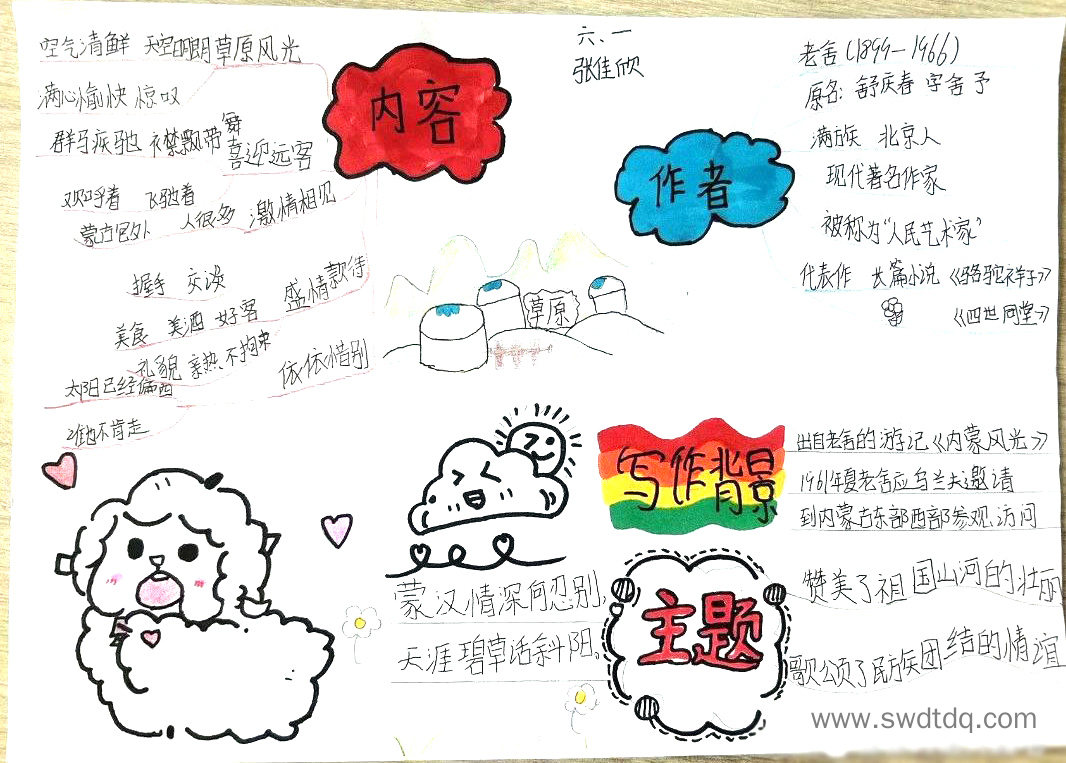 六、一
张佳欣
内容
空气清鲜 天空明朗 草原风光
满心愉快 惊叹
群马疾驰 衣襟飘带舞 喜迎远客
欢呼者 飞驰着
蒙古包外 人很多 激情相见
握手 交谈
美食 美酒 好客 盛情款待
礼貌 亲热、不拘束
太阳已经偏西
谁也不肯走
依依惜别
作者
老舍(1899—1966)
原名:舒庆春 字舍予
满族 北京人
现代著名作家
被称为“人民艺术家”
代表作 长篇小说 《骆驼祥子》
《四世同堂》
草原
写作背景
出自老舍的游记《内蒙风光》
1961年夏老舍应乌兰夫邀请
到内蒙古东部西部参观、访问
蒙汉情深何忍别,
天涯碧草话斜阳。
主题
赞美了祖国山河的壮丽
歌颂了民族团结的情谊
www.swdtdq.com